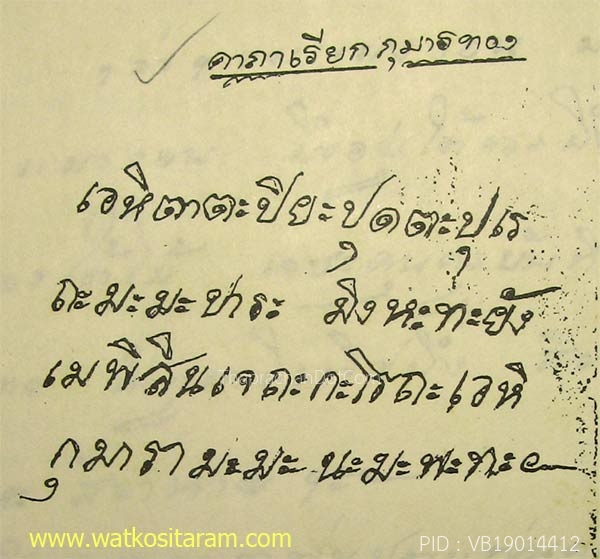 คาถาเรียกกุมารทอง
เอหิตาตะปิยะปุตตะปุเร
ถะมะมะปาระ มิงหะทะยัง
เมพิสินเจถะกะโรถะเอหิ
กุมารา มะมะ นะมะพะทะ
www.watkositaram.com
PID : VB19014412